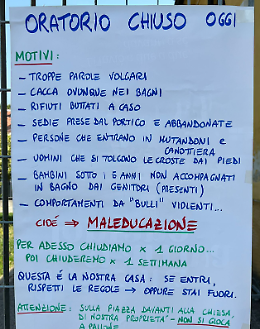 ORATORIO CHIUSO OGGI
MOTIVI:
- TROPPE PAROLE VOLGARI
- CACCA OVUNQUE NEI BAGNI
- RIFIUTI BUTTATI A CASO
- SEDIE PRESE DAL PORTICO E ABBANDONATE
- PERSONE CHE ENTRANO IN MUTANDONI E
CANOTTIERA
- UOMINI CHE SI TOLGONO LE CROSTE DAI PIEDI
- BAMBINI SOTTO I 6 ANNI NON ACCOMPAGNATI
IN BAGNO DAI GENITORI (PRESENTI)
- COMPORTAMENTI DA "BULLI" VIOLENTI...
CIOÉ ⇒ MALEDUCAZIONE
PER ADESSO CHIUDIAMO X 1 GIORNO...
POI CHIUDEREMO X 1 SETTIMANA
QUESTA É LA NOSTRA CASA: SE ENTRI,
RISPETTI LE REGOLE → OPPURE STAI FUORI.
ATTENZIONE: SULLA PIAZZA DAVANTI ALLA CHIESA,
DI NOSTRA PROPRIETÀ - NON SI GIOCA
A PALLONE